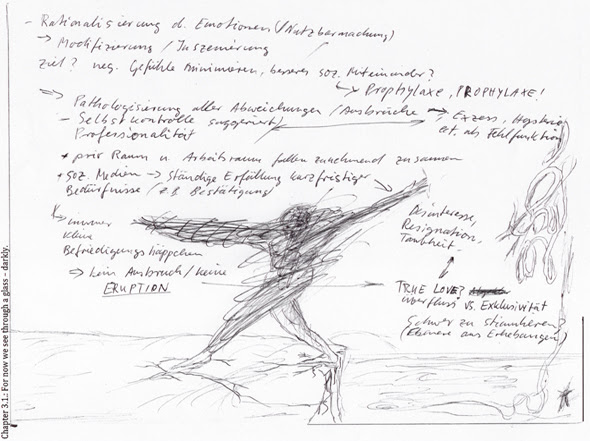 - Rationalisierung d. Emotionen (/Nutzbarmachung)
-> Modifizierung / Inszenierung
Ziel? neg. Gefühle minimieren, besseres soz. Miteinander?
↳ Prophylaxe, PROPHYLAXE!
=> Pathologisierung aller Abweichungen / Ausbrüche -> Exzess, Hysterie
- Selbstkontrolle suggeriert / et. als Fehlfunktion
Professionalität
+ priv Raum u. Arbeitsraum fallen zunehmend zusammen
+ soz. Medien -> Ständige Erfüllung kurzfristiger
Bedürfnisse / z.B. Bestätigung
↳ immer
kleine
Befriedigungshäppchen
=> kein Ausbruch / keine
ERUPTION
Desinteresse,
Resignation,
Taubheit.
TRUE LOVE?
Überfluss vs. Exklusivität
Schwer zu stimulieren
(Ebenen aus Erhebungen)
Chapter 3.1.: For now we see through a glass – darkly.